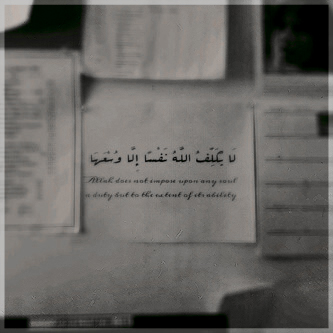 لَا يُكَلِّفُ اللَّهُ نَفْسًا إِلَّا وُسْعَهَا
Allah does not impose upon any soul
a duty but to the extent of its ability